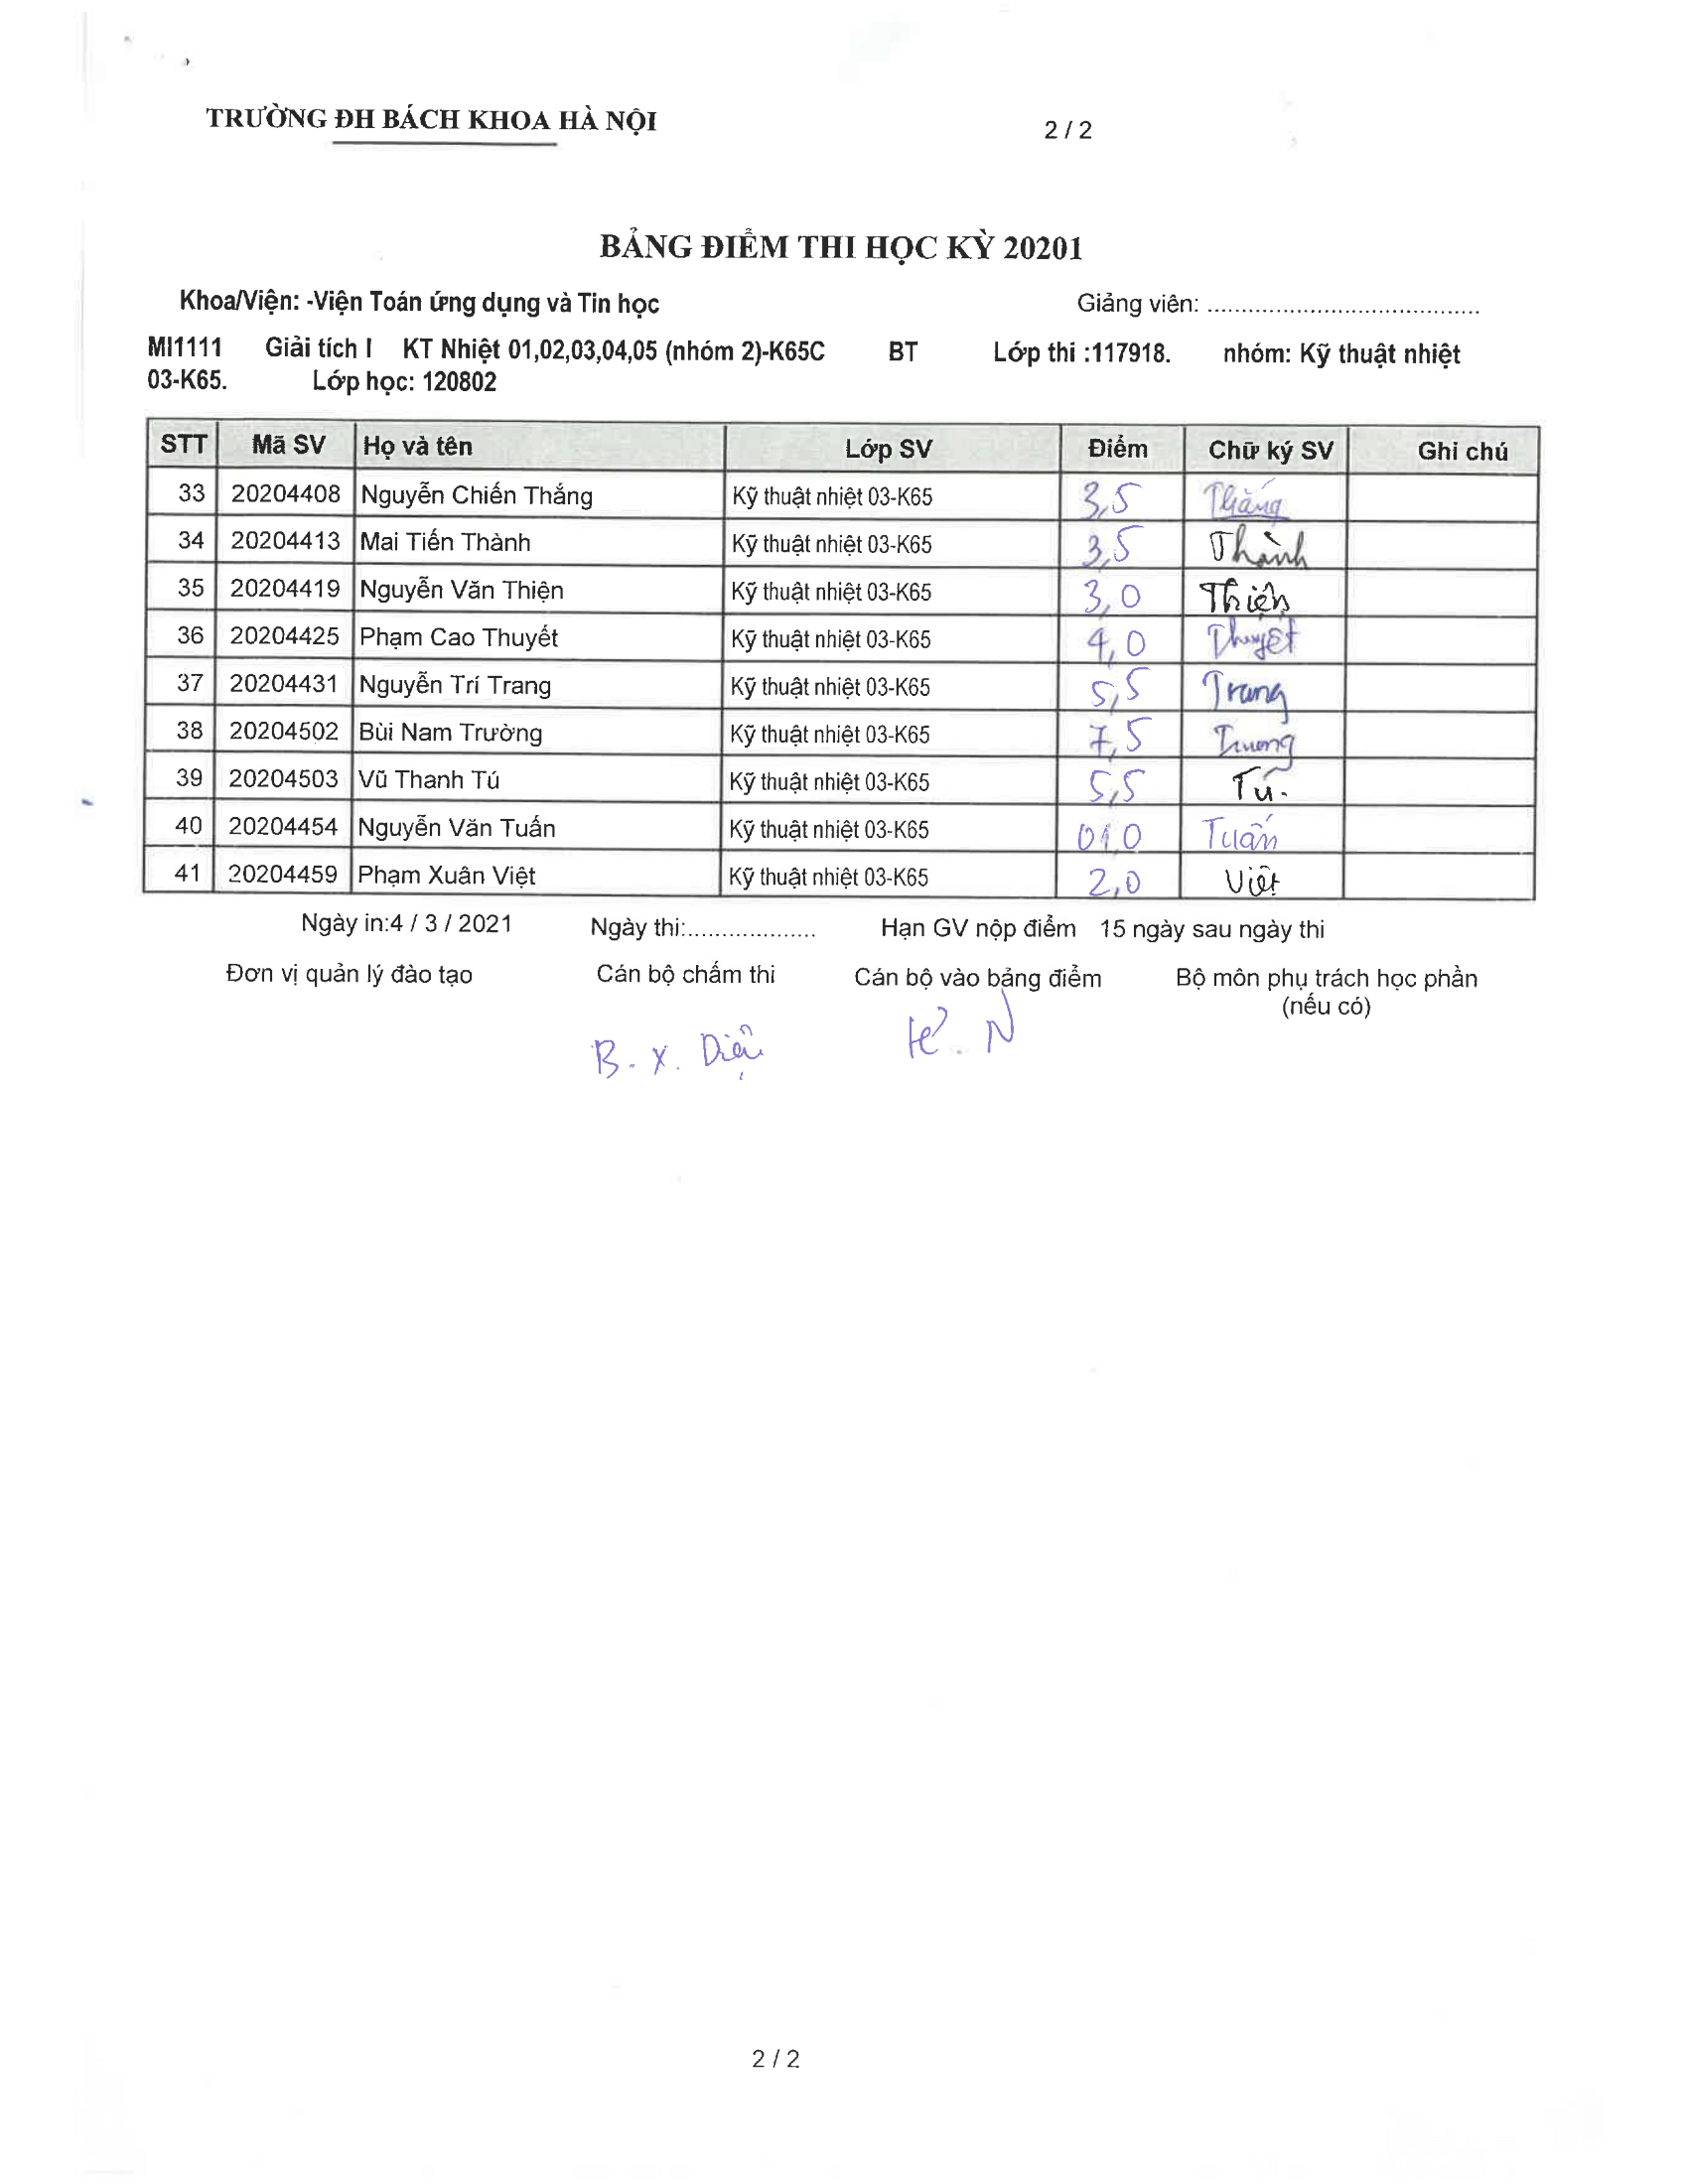 TRƯỜNG ĐH BÁCH KHOA HÀ NỘI
2 / 2
BẢNG ĐIỂM THI HỌC KỲ 20201
Khoa/Viện: -Viện Toán ứng dụng và Tin học Giảng viên: ........................................
MI1111 Giải tích I KT Nhiệt 01,02,03,04,05 (nhóm 2)-K65C BT Lớp thi :117918. nhóm: Kỹ thuật nhiệt
03-K65. Lớp học: 120802
STT Mã SV Họ và tên Lớp SV Điểm Chữ ký SV Ghi chú
33 20204408 Nguyễn Chiến Thắng Kỹ thuật nhiệt 03-K65 3,5 Thắng
34 20204413 Mai Tiến Thành Kỹ thuật nhiệt 03-K65 3,5 Thành
35 20204419 Nguyễn Văn Thiện Kỹ thuật nhiệt 03-K65 3,0 Thiện
36 20204425 Phạm Cao Thuyết Kỹ thuật nhiệt 03-K65 4,0 Thuyết
37 20204431 Nguyễn Trí Trang Kỹ thuật nhiệt 03-K65 5,5 Trang
38 20204502 Bùi Nam Trường Kỹ thuật nhiệt 03-K65 7,5 Trương
39 20204503 Vũ Thanh Tú Kỹ thuật nhiệt 03-K65 5,5 Tú.
40 20204454 Nguyễn Văn Tuấn Kỹ thuật nhiệt 03-K65 01,0 Tuấn
41 20204459 Phạm Xuân Việt Kỹ thuật nhiệt 03-K65 2,0 Việt
Ngày in:4 / 3 / 2021 Ngày thi:................... Hạn GV nộp điểm 15 ngày sau ngày thi
Đơn vị quản lý đào tạo Cán bộ chấm thi Cán bộ vào bảng điểm Bộ môn phụ trách học phần
(nếu có)
B. X. Diệu
2 / 2